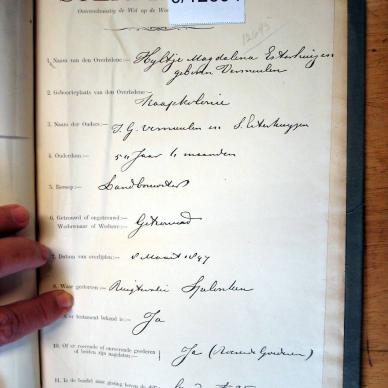 Overeenkomstig de Wet op de
12645
1. Naam van den Overledene:— Hyltje Magdalena Esterhuizen
geboren Vermeulen
2. Geboorteplaats van den Overledene:— Kaapkolonie
3. Namen der Ouders:— J. G. Vermeulen en S. Esterhuyzen
4. Ouderdom:— 54 Jaar 4 maanden
5. Beroep:— Landbouwster
6. Getrouwd of ongetrouwd:— Getrouwd
Weduwnaar of Weduwe:—
7. Datum van overlijden:— 8 Maart 1897
8. Waar gestorven:— Spelonken
testament bekend is:— Ja
10. Of er roerende of onroerende goederen Ja (Roerende Goederen)
of beiden zijn nagelaten:—
11. Is de boedel